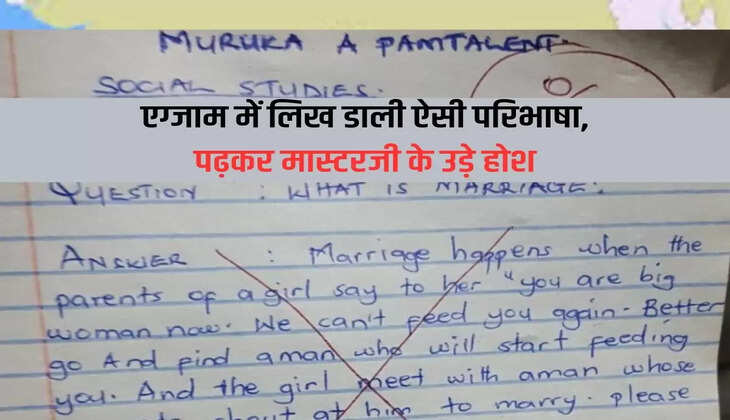 MURUKA A PAMTALENT
SOCIAL STUDIES.
एग्जाम में लिख डाली ऐसी परिभाषा,
पढ़कर मास्टरजी के उड़े होश
QUESTION : WHAT IS MARRIAGE.
ANSWER : Marriage happens when the
parents of a girl say to her "you are big
woman now. We can't feed you again. Better
go And find a man who will start feeding
you. And the girl meet with aman whose
at him to marry. please